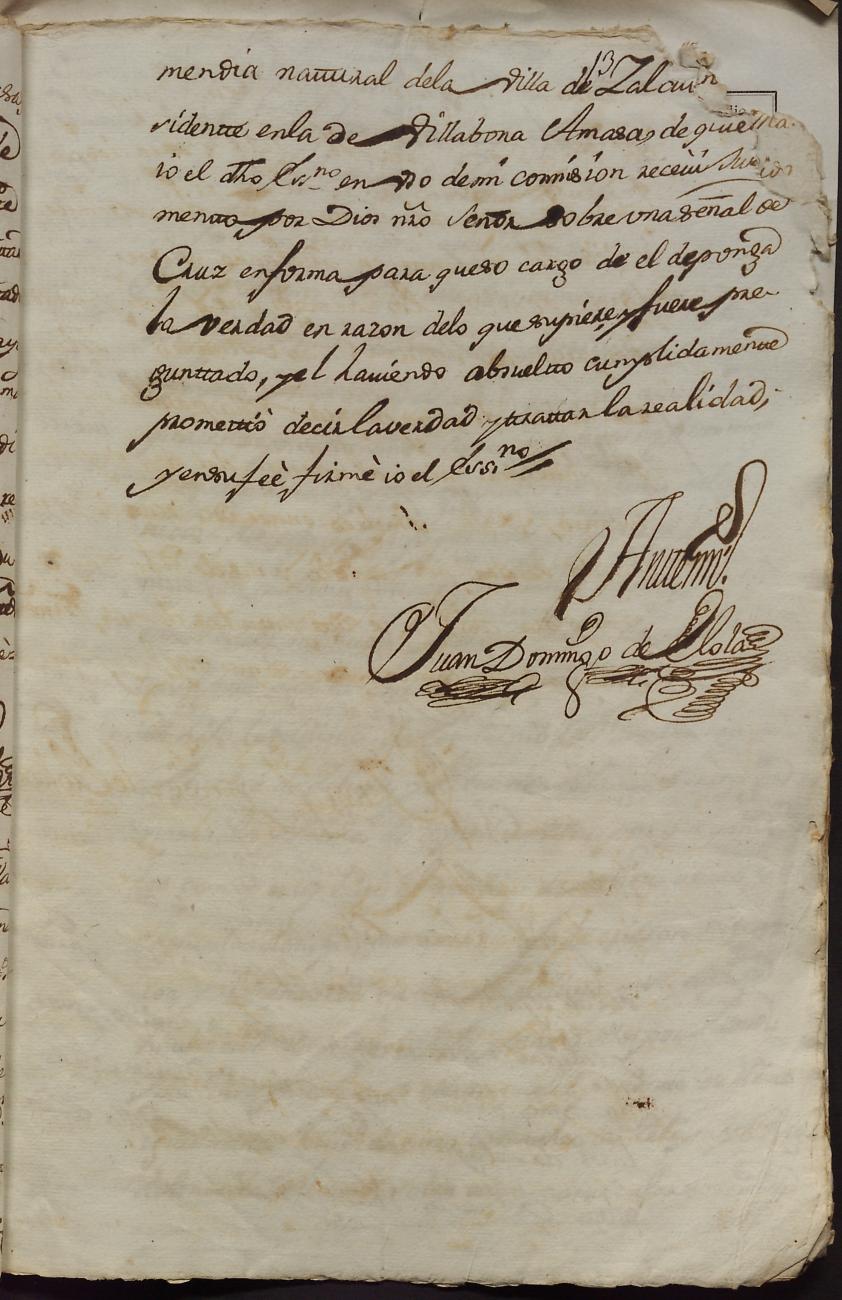 13
mendia natural dela Villa de Zaldiui
rsidente enla de Villabona Amasa, de quien
io el dho Essno en uso demi comision receui
mento por Dios nro Señor sobre una señal de
Cruz en forma para queso cargo de el deponga
la verdad en razon delo que supiere y fuere pre-
guntado, y el hauiendo absuelto cumplidamente
prometió decir la verdad y trattar la realidad,
y en su feè firmè io el Essno
Antemi
Juan Domingo de